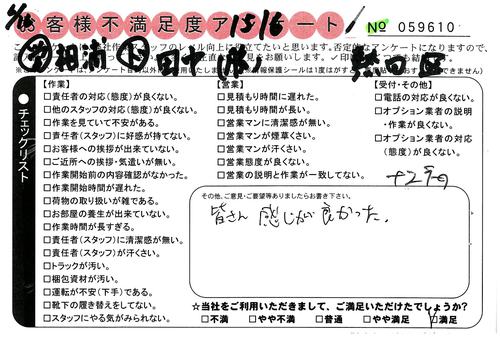 お客様不満足度アンケート
1516
No 059610
【作業】
□責任者の対応(態度)が良くない。
□他のスタッフの対応(態度)が良くない。
□作業を見ていて不安がある。
□責任者(スタッフ)に好感が持てない。
□お客様への挨拶が出来ていない。
□ご近所への挨拶・気遣いが無い。
□作業開始前の内容確認がなかった。
□作業開始時間が遅れた。
□荷物の取り扱いが雑である。
□お部屋の養生が出来ていない。
□作業時間が長すぎる。
□責任者(スタッフ)に清潔感が無い。
□責任者(スタッフ)が汗くさい。
□トラックが汚い。
□梱包資材が汚い。
□運転が不安(下手)である。
□靴下の履き替えをしてない。
□スタッフにやる気がみられない。
【営業】
□見積もり時間に遅れた。
□見積もり時間が長い。
□営業マンに清潔感が無い。
□営業マンが煙草くさい。
□営業マンが汗くさい。
□営業態度が良くない。
□営業の説明と作業が一致してない。
【受付・その他】
□電話の対応が良くない。
□オプション業者の説明
・作業が良くない。
□オプション業者の対応
(態度)が良くない。
チェックリスト
その他、ご意見・ご要望等ありましたらお書き下さい。
皆さん 感じが良かった。
☆当社をご利用いただきまして、ご満足いただけたでしょうか?
□不満 □やや不満 □普通 □やや満足 □満足